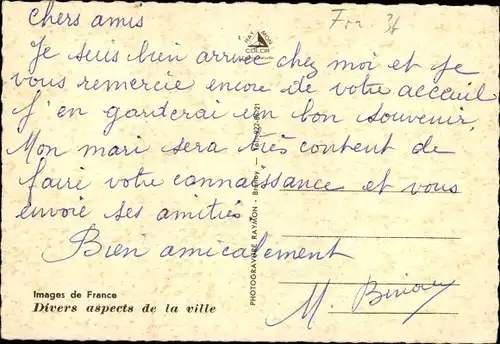 chers amis
Fra 34
RAYMON
COLOR
Je suis bien arrivée chez moi et je
vous remercie encore de votre accueil
J'en garderai un bon souvenir,
Mon mari sera très content de
faire votre connaissance et vous
envoie ses amitiés
Bien amicalement
M.
PHOTOGRAVURE RAYMON
Images de France
Divers aspects de la ville